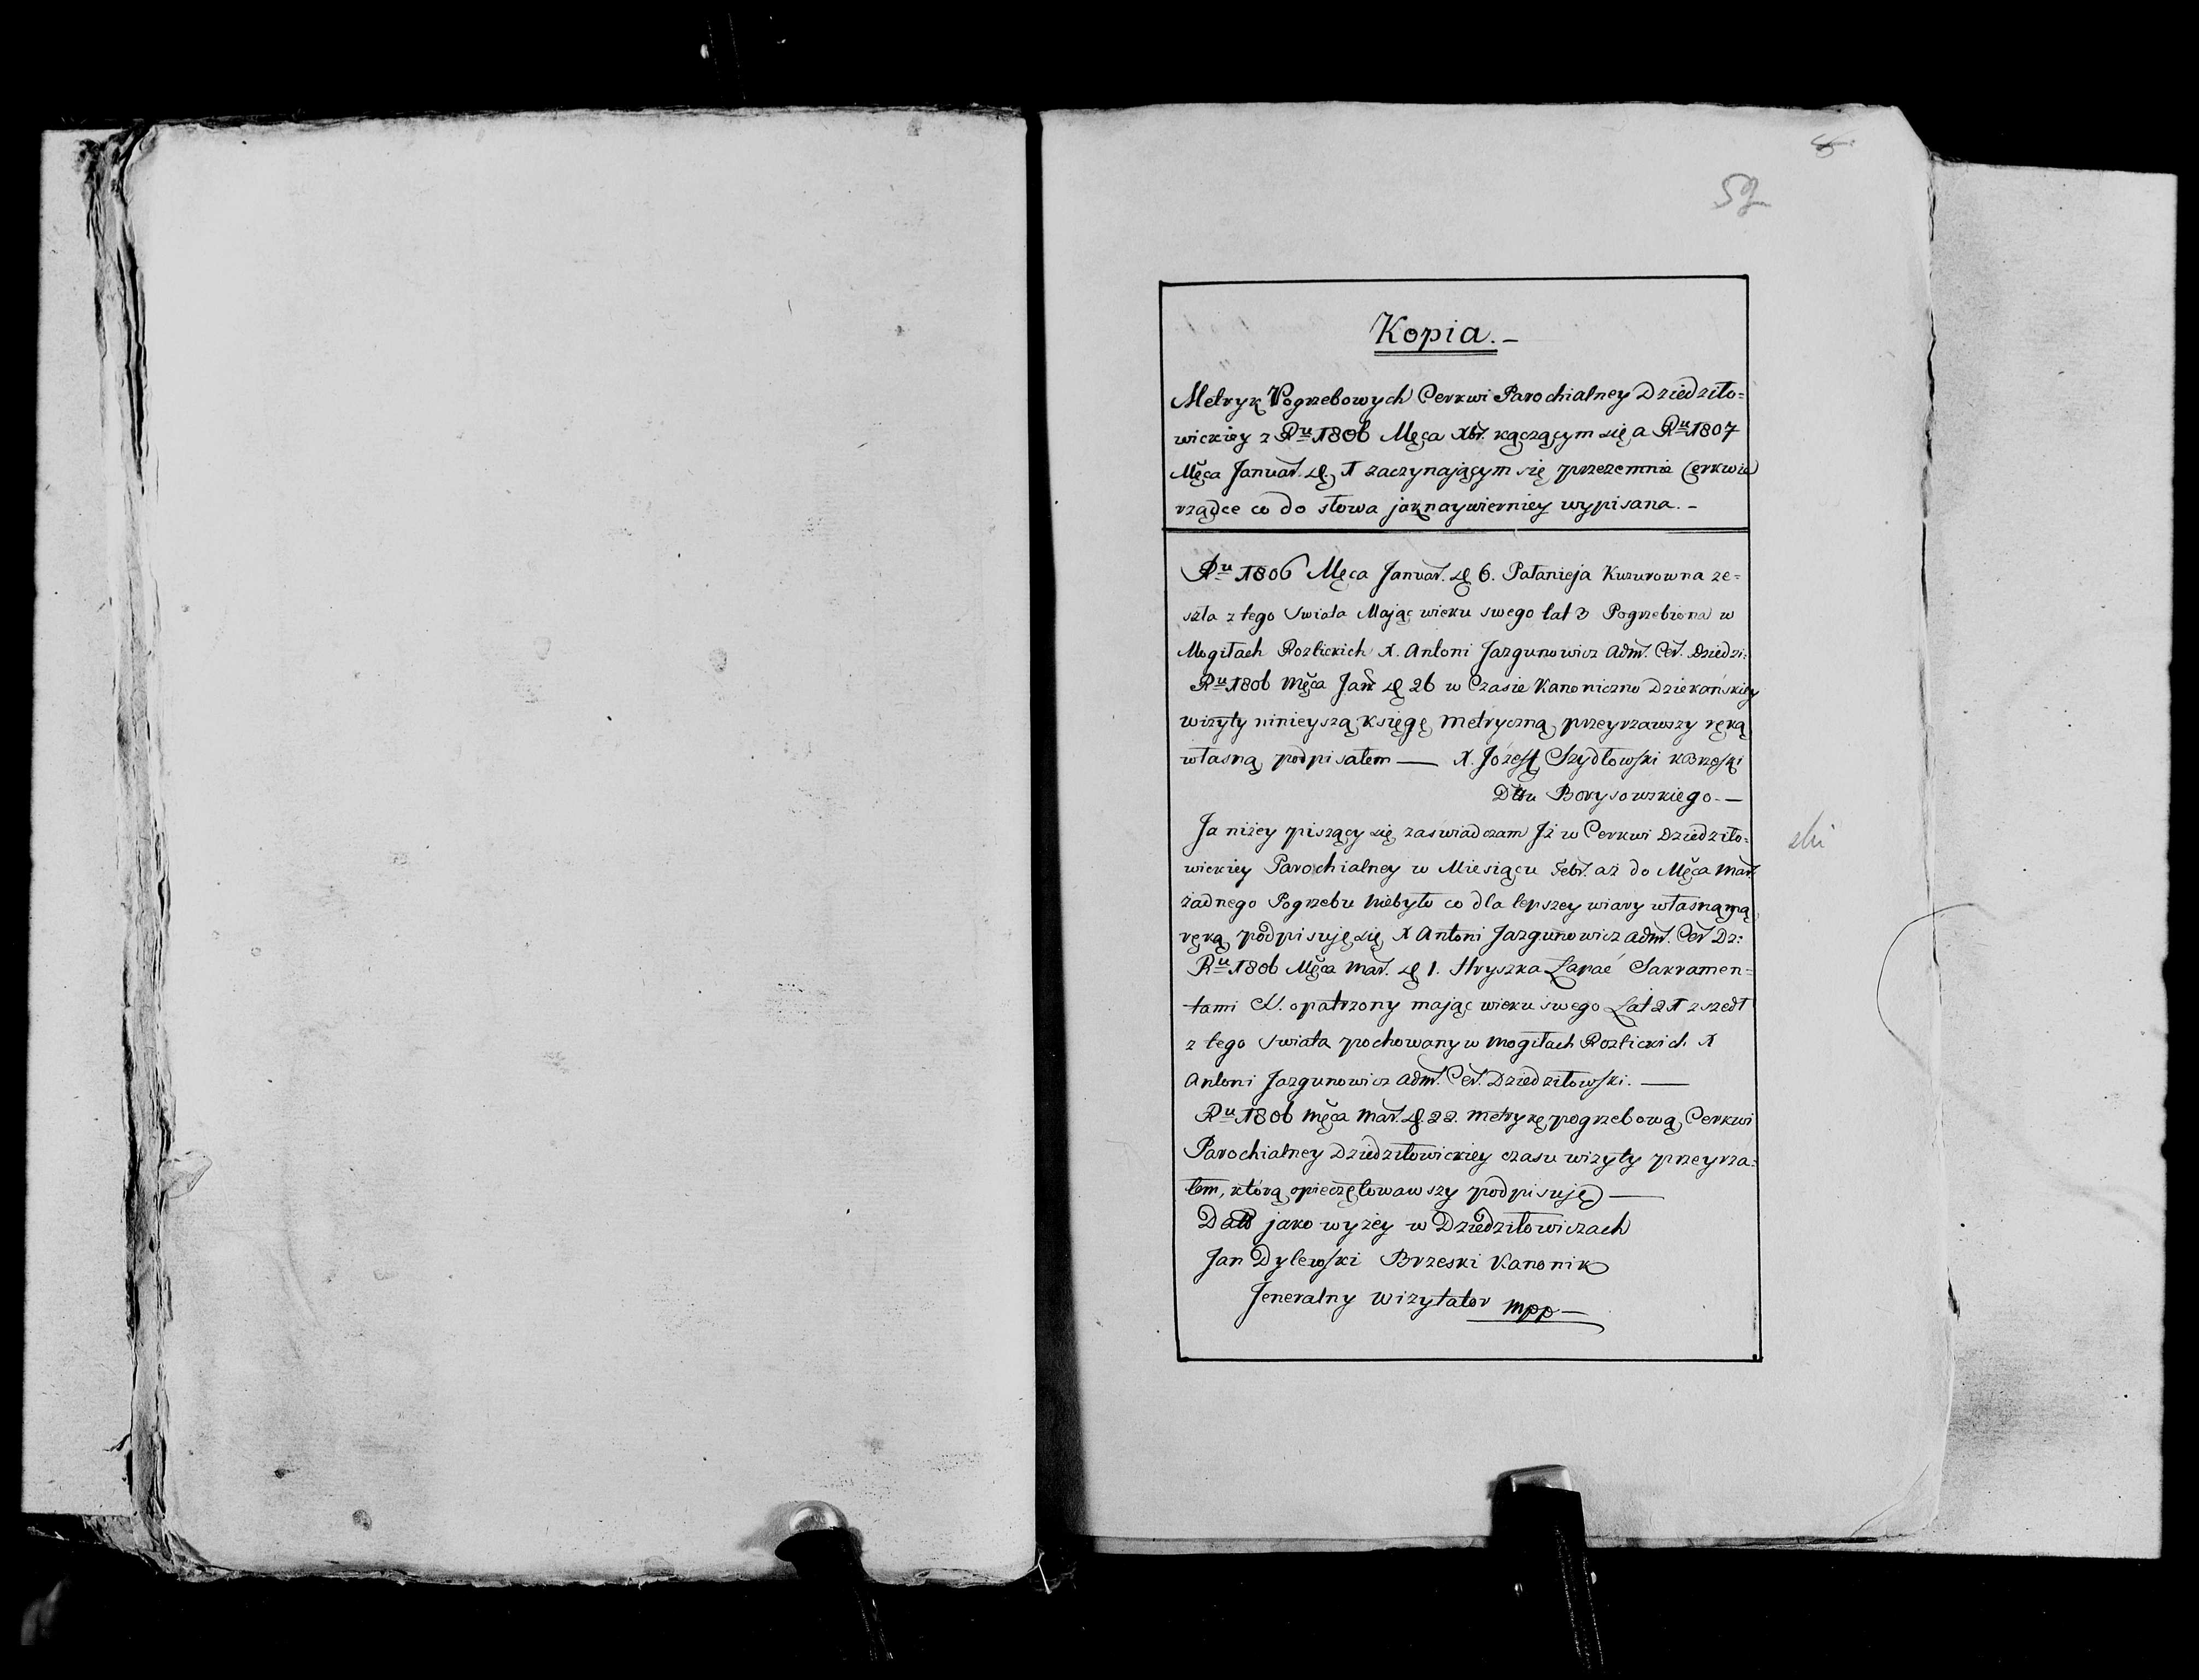 59
Kopia.-
Metryk Pogrzebowych Cerkwi Parochialney Dziedziło=
wickiey z Ru 1806 Męca Xbr. kączącym się a Ru 1807
Męca Januar. D. 1 zaczynającym się przezemnie Cerkwie
rządce co do słowa jaknaywierniey wypisana.-
Ru 1806 Męca Januar. D 6. Pałanieja Kuzurowna ze=
szła z tego Swiata Mając wieku swego lat 3 Pogrzebiona w
Mogiłach Rozlickich X. Antoni Jazgunowicz Adm. Cer. Dziedzi:
Ru 1806 Męca Jan D 26 w Czasie Kanoniczno Dziekańskiey
wizyty ninieyszą księgę metryczną przeyrzawszy ręką
własną podpisałem — X. Józeff Szydłowski K Brzeski
Dttu Borysowskiego.—
Ja niżey piszący się zaświadczam Jż w Cerkwi Dziedziło=
wickiey Parochialney w Miesiącu Febr. aż do Męca Mar.
żadnego Pogrzebu niebyło co dla lepszey wiary własną mą
ręką podpisuję się X Antoni Jazgunowicz Adm. Cer Dz:
Ru 1806 Męca Mar. D 1. Hryszka Łapać Sakramen=
tami S. opatrzony mając wieku swego Lat 21 zszedł
z tego Swiata pochowany w mogiłach Rozlickich X
Antoni Jazgunowicz Adm. Cer. Dziedziłowski. —
Ru 1806 Męca Mar. D. 22. metrykę pogrzebową Cerkwi
Parochialney Dziedziłowickiey czasu wizyty przeyrza=
łem, którą opieczętowawszy podpisuję —
Datt jako wyżey w Dziedziłowiczach
Jan Dylewski Brzeski Kanonik
Jeneralny Wizytator mpp —